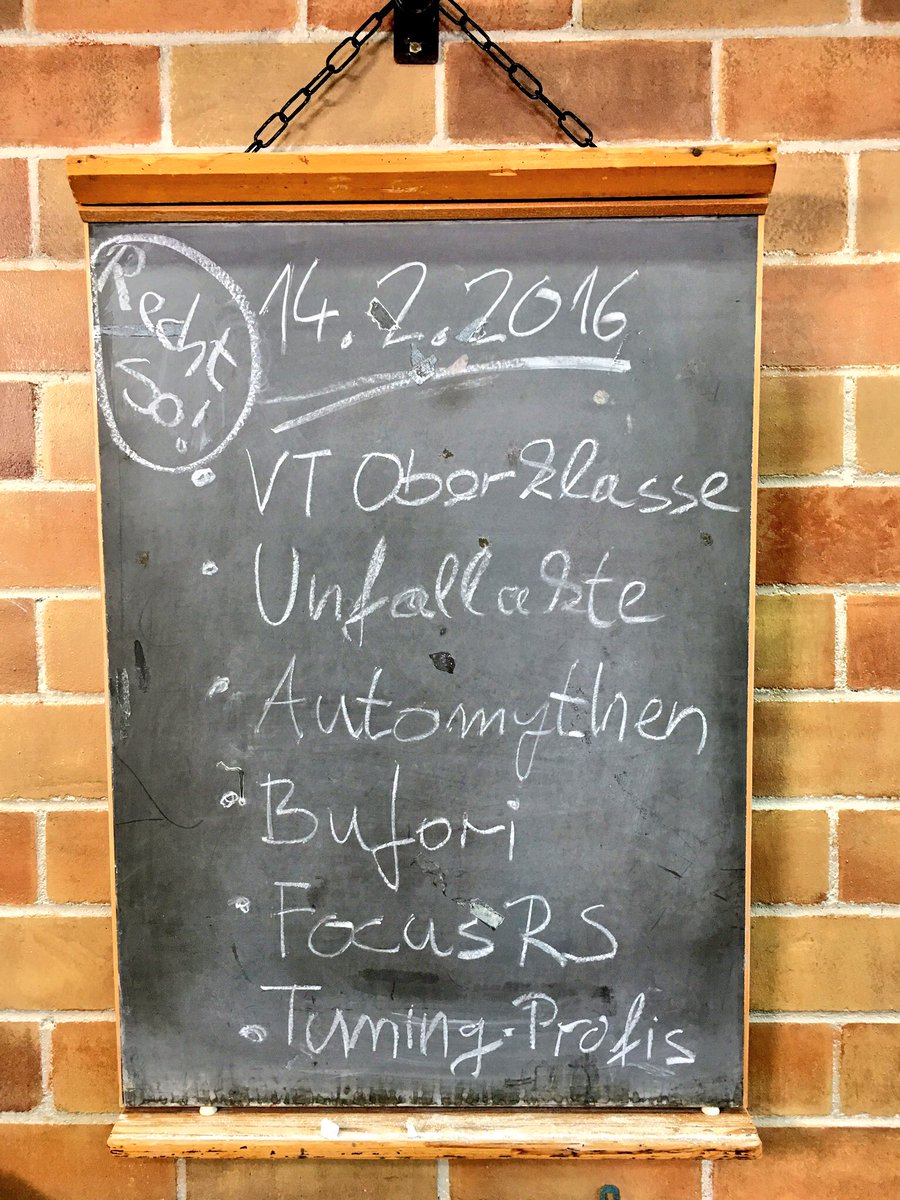 Recht
So!
14.2.2016
VT Oberklasse
Unfallakte
Automythen
Bufori
Focus RS
Tuning-Profis